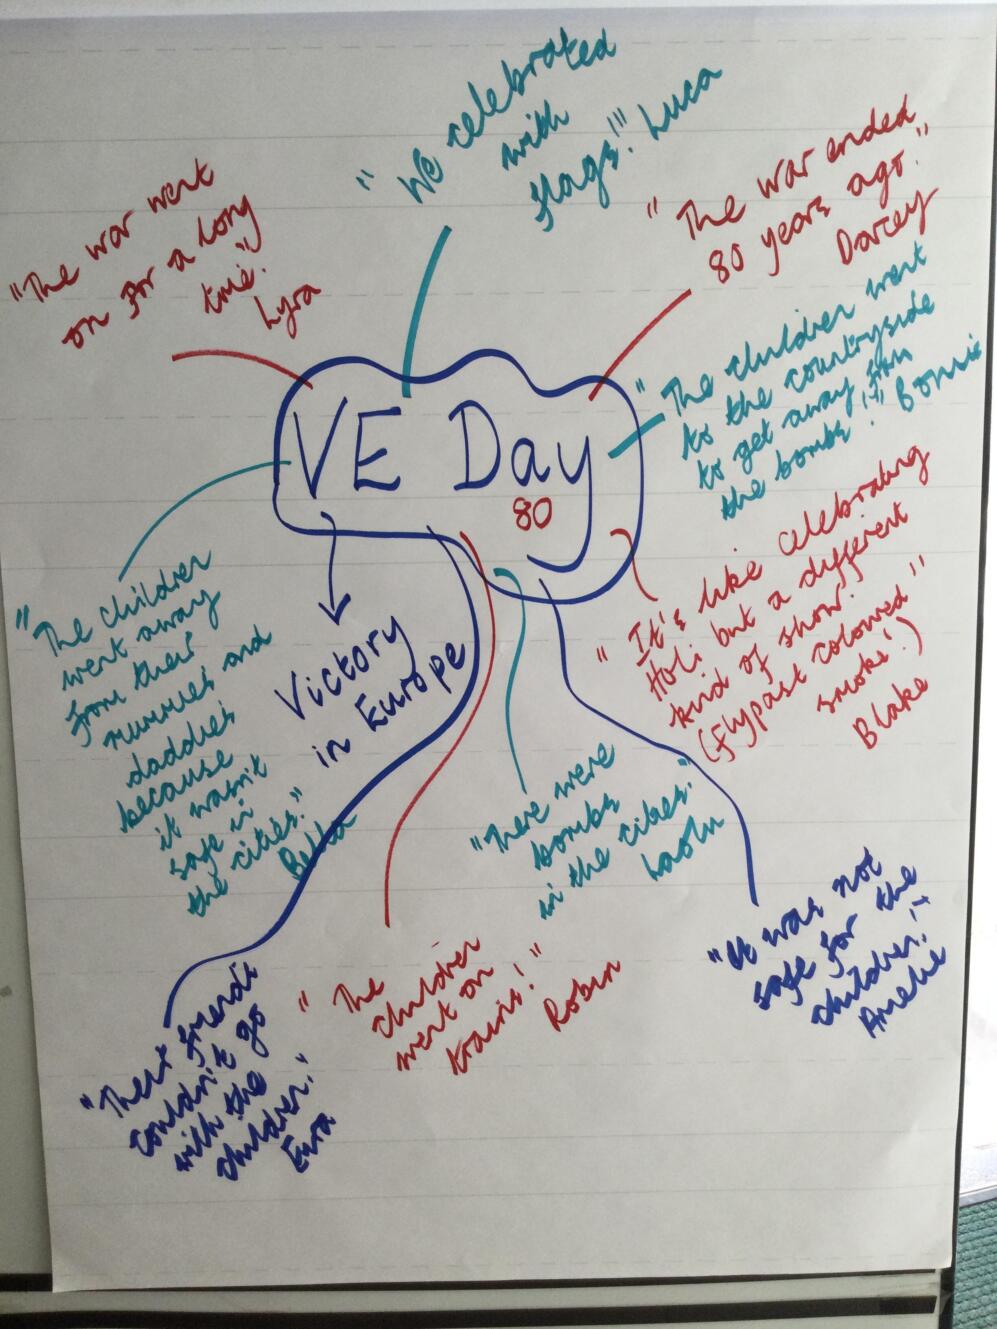 "We celebrated
with
flags!" Luca
"The war went
on for a long
time."
Lyra
"The war ended
80 years ago."
Darcey
"The children went
to the countryside
to get away from
the bombs!" Bonnie
VE Day
80
Victory
in Europe
"It's like celebrating
Holi but a different
kind of show."
(flypast coloured
smoke!)
Blake
"The children
went away
from their
mummies and
daddies
because
it wasn't
safe in
the cities."
Bella
"There were
bombs
in the cities."
"It was not
safe for the
children."
Amelie
"The
children
went on
trains!"
Robin
"Their friends
couldn't go
with the
children."